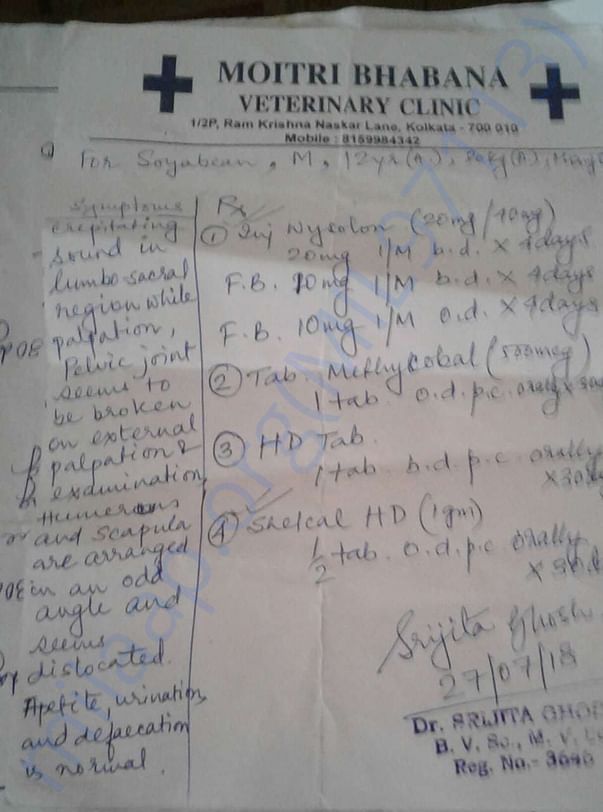 MOITRI BHABANA
VETERINARY CLINIC
1/2P, Ram Krishna Naskar Lane, Kolkata - 700 010
Mobile : 8159984342
For Soyabean, M, 12yr(A),
Symptoms
crepitating
sound in
lumbo-sacral
region while
palpation,
Pelvic joint
seems to
be broken
on external
palpation &
examination,
Humerous
and Scapula
are arranged
in an odd
angle and
seems
dislocated.
Apetite, urination,
and defaecation
is normal.
Rx
① Inj Wysolon (20mg/40mg)
20mg I/M b.d. x 4days
F.B. 10mg I/M b.d. x 4days
F.B. 10mg I/M o.d. x 4days
② Tab. Methycobal (500mcg)
1 tab. o.d. p.c. orally x 30
③ HD Tab.
1 tab. b.d. p.c. orally
x 30
④ Shelcal HD (1gm)
1/2 tab. o.d. p.c. orally
x 30
Srijita Ghosh
27/07/18
Dr. SRIJITA GHOS
B. V. Sc., M. V.
Reg. No.- 3646
milaap.org(MIL-9711